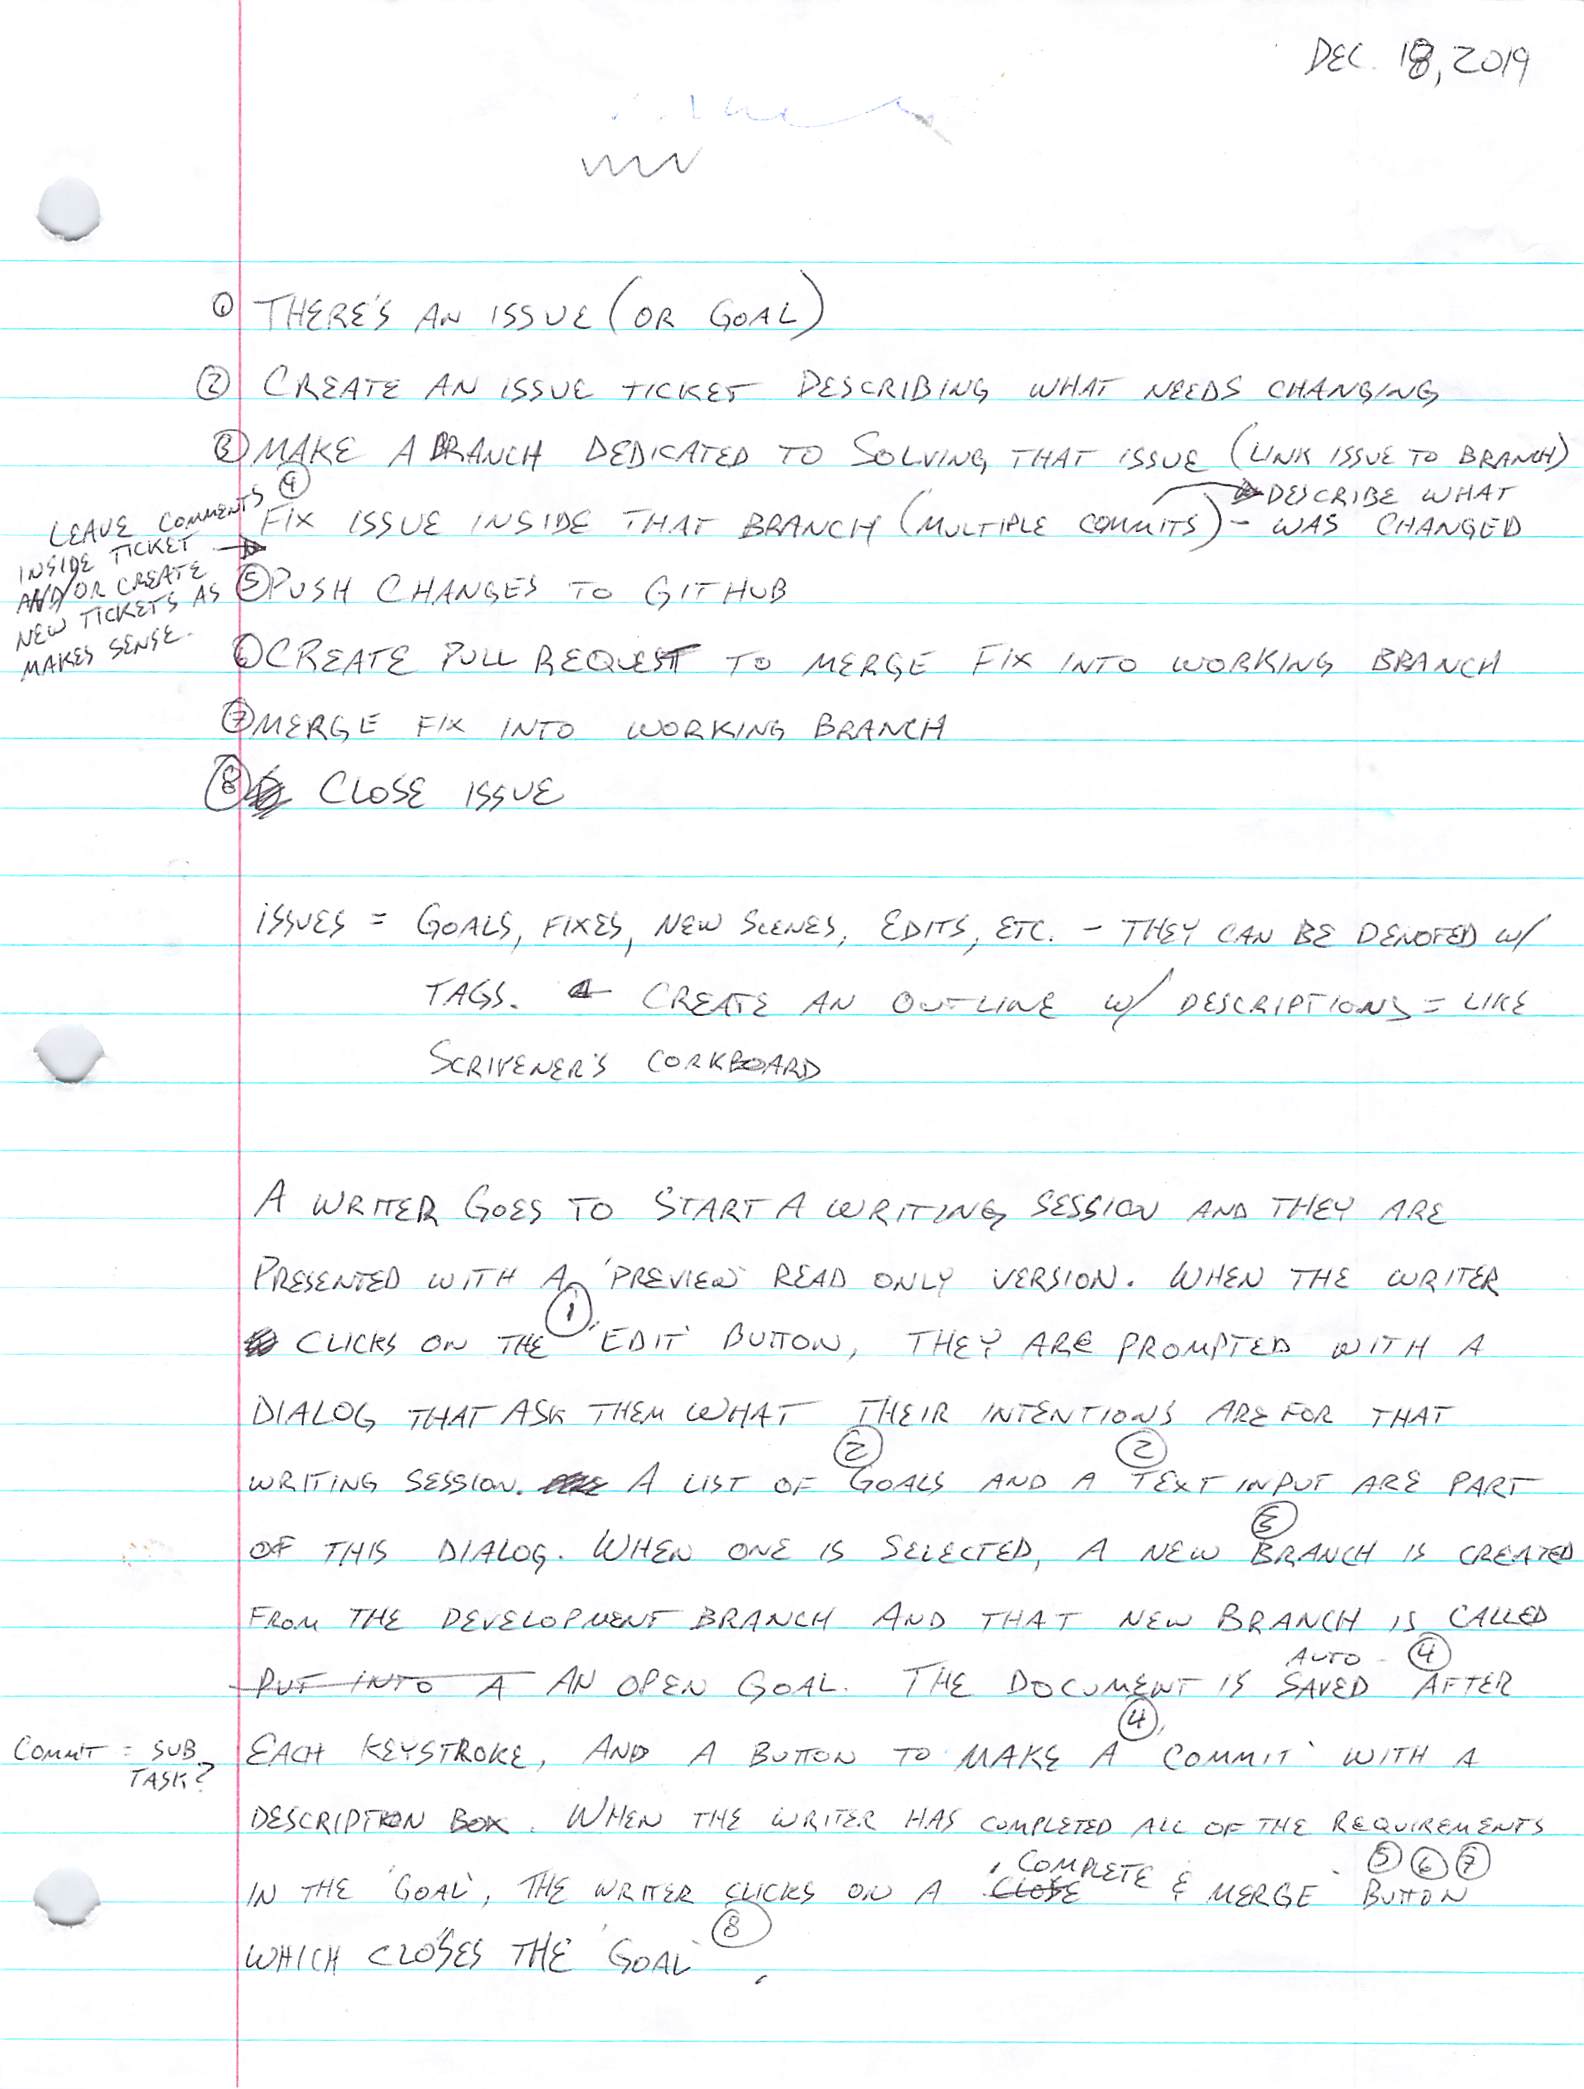 DEC. 18, 2019
① THERE'S AN ISSUE (OR GOAL)
② CREATE AN ISSUE TICKET DESCRIBING WHAT NEEDS CHANGING
③ MAKE A BRANCH DEDICATED TO SOLVING THAT ISSUE (LINK ISSUE TO BRANCH)
④ FIX ISSUE INSIDE THAT BRANCH (MULTIPLE COMMITS) - DESCRIBE WHAT
WAS CHANGED
LEAVE COMMENTS
INSIDE TICKET
AND/OR CREATE
NEW TICKETS AS
MAKES SENSE.
⑤ PUSH CHANGES TO GITHUB
⑥ CREATE PULL REQUEST TO MERGE FIX INTO WORKING BRANCH
⑦ MERGE FIX INTO WORKING BRANCH
⑧ CLOSE ISSUE
ISSUES = GOALS, FIXES, NEW SCENES, EDITS, ETC. - THEY CAN BE DENOTED W/
TAGS. CREATE AN OUTLINE W/ DESCRIPTIONS = LIKE
SCRIVENER'S CORKBOARD
A WRITER GOES TO START A WRITING SESSION AND THEY ARE
PRESENTED WITH A 'PREVIEW' READ ONLY VERSION. WHEN THE WRITER
CLICKS ON THE ① 'EDIT' BUTTON, THEY ARE PROMPTED WITH A
DIALOG THAT ASK THEM WHAT THEIR INTENTIONS ARE FOR THAT
WRITING SESSION. A LIST OF ② GOALS AND A ② TEXT INPUT ARE PART
OF THIS DIALOG. WHEN ONE IS SELECTED, A NEW ③ BRANCH IS CREATED
FROM THE DEVELOPMENT BRANCH AND THAT NEW BRANCH IS CALLED
PUT INTO A AN OPEN GOAL. THE DOCUMENT IS AUTO-SAVED ④ AFTER
EACH KEYSTROKE, AND A BUTTON TO MAKE A ④ 'COMMIT' WITH A
COMMIT = SUB
TASK?
DESCRIPTION BOX. WHEN THE WRITER HAS COMPLETED ALL OF THE REQUIREMENTS
IN THE 'GOAL', THE WRITER CLICKS ON A CLOSE 'COMPLETE & MERGE' ⑤ ⑥ ⑦ BUTTON
WHICH CLOSES THE 'GOAL' ⑧.